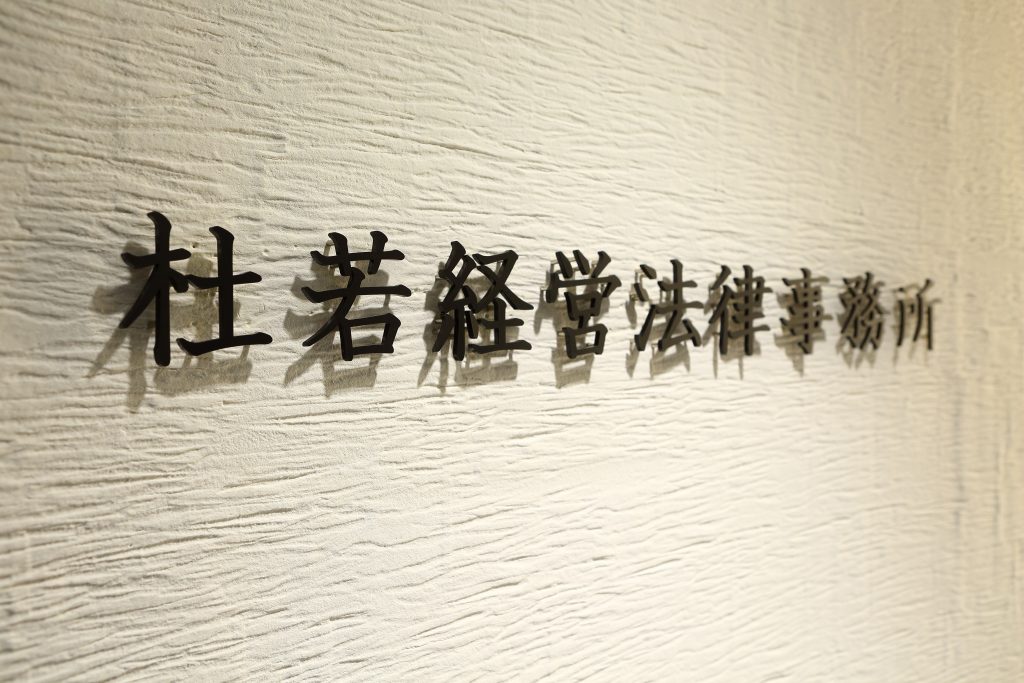 杜若経営法律事務所